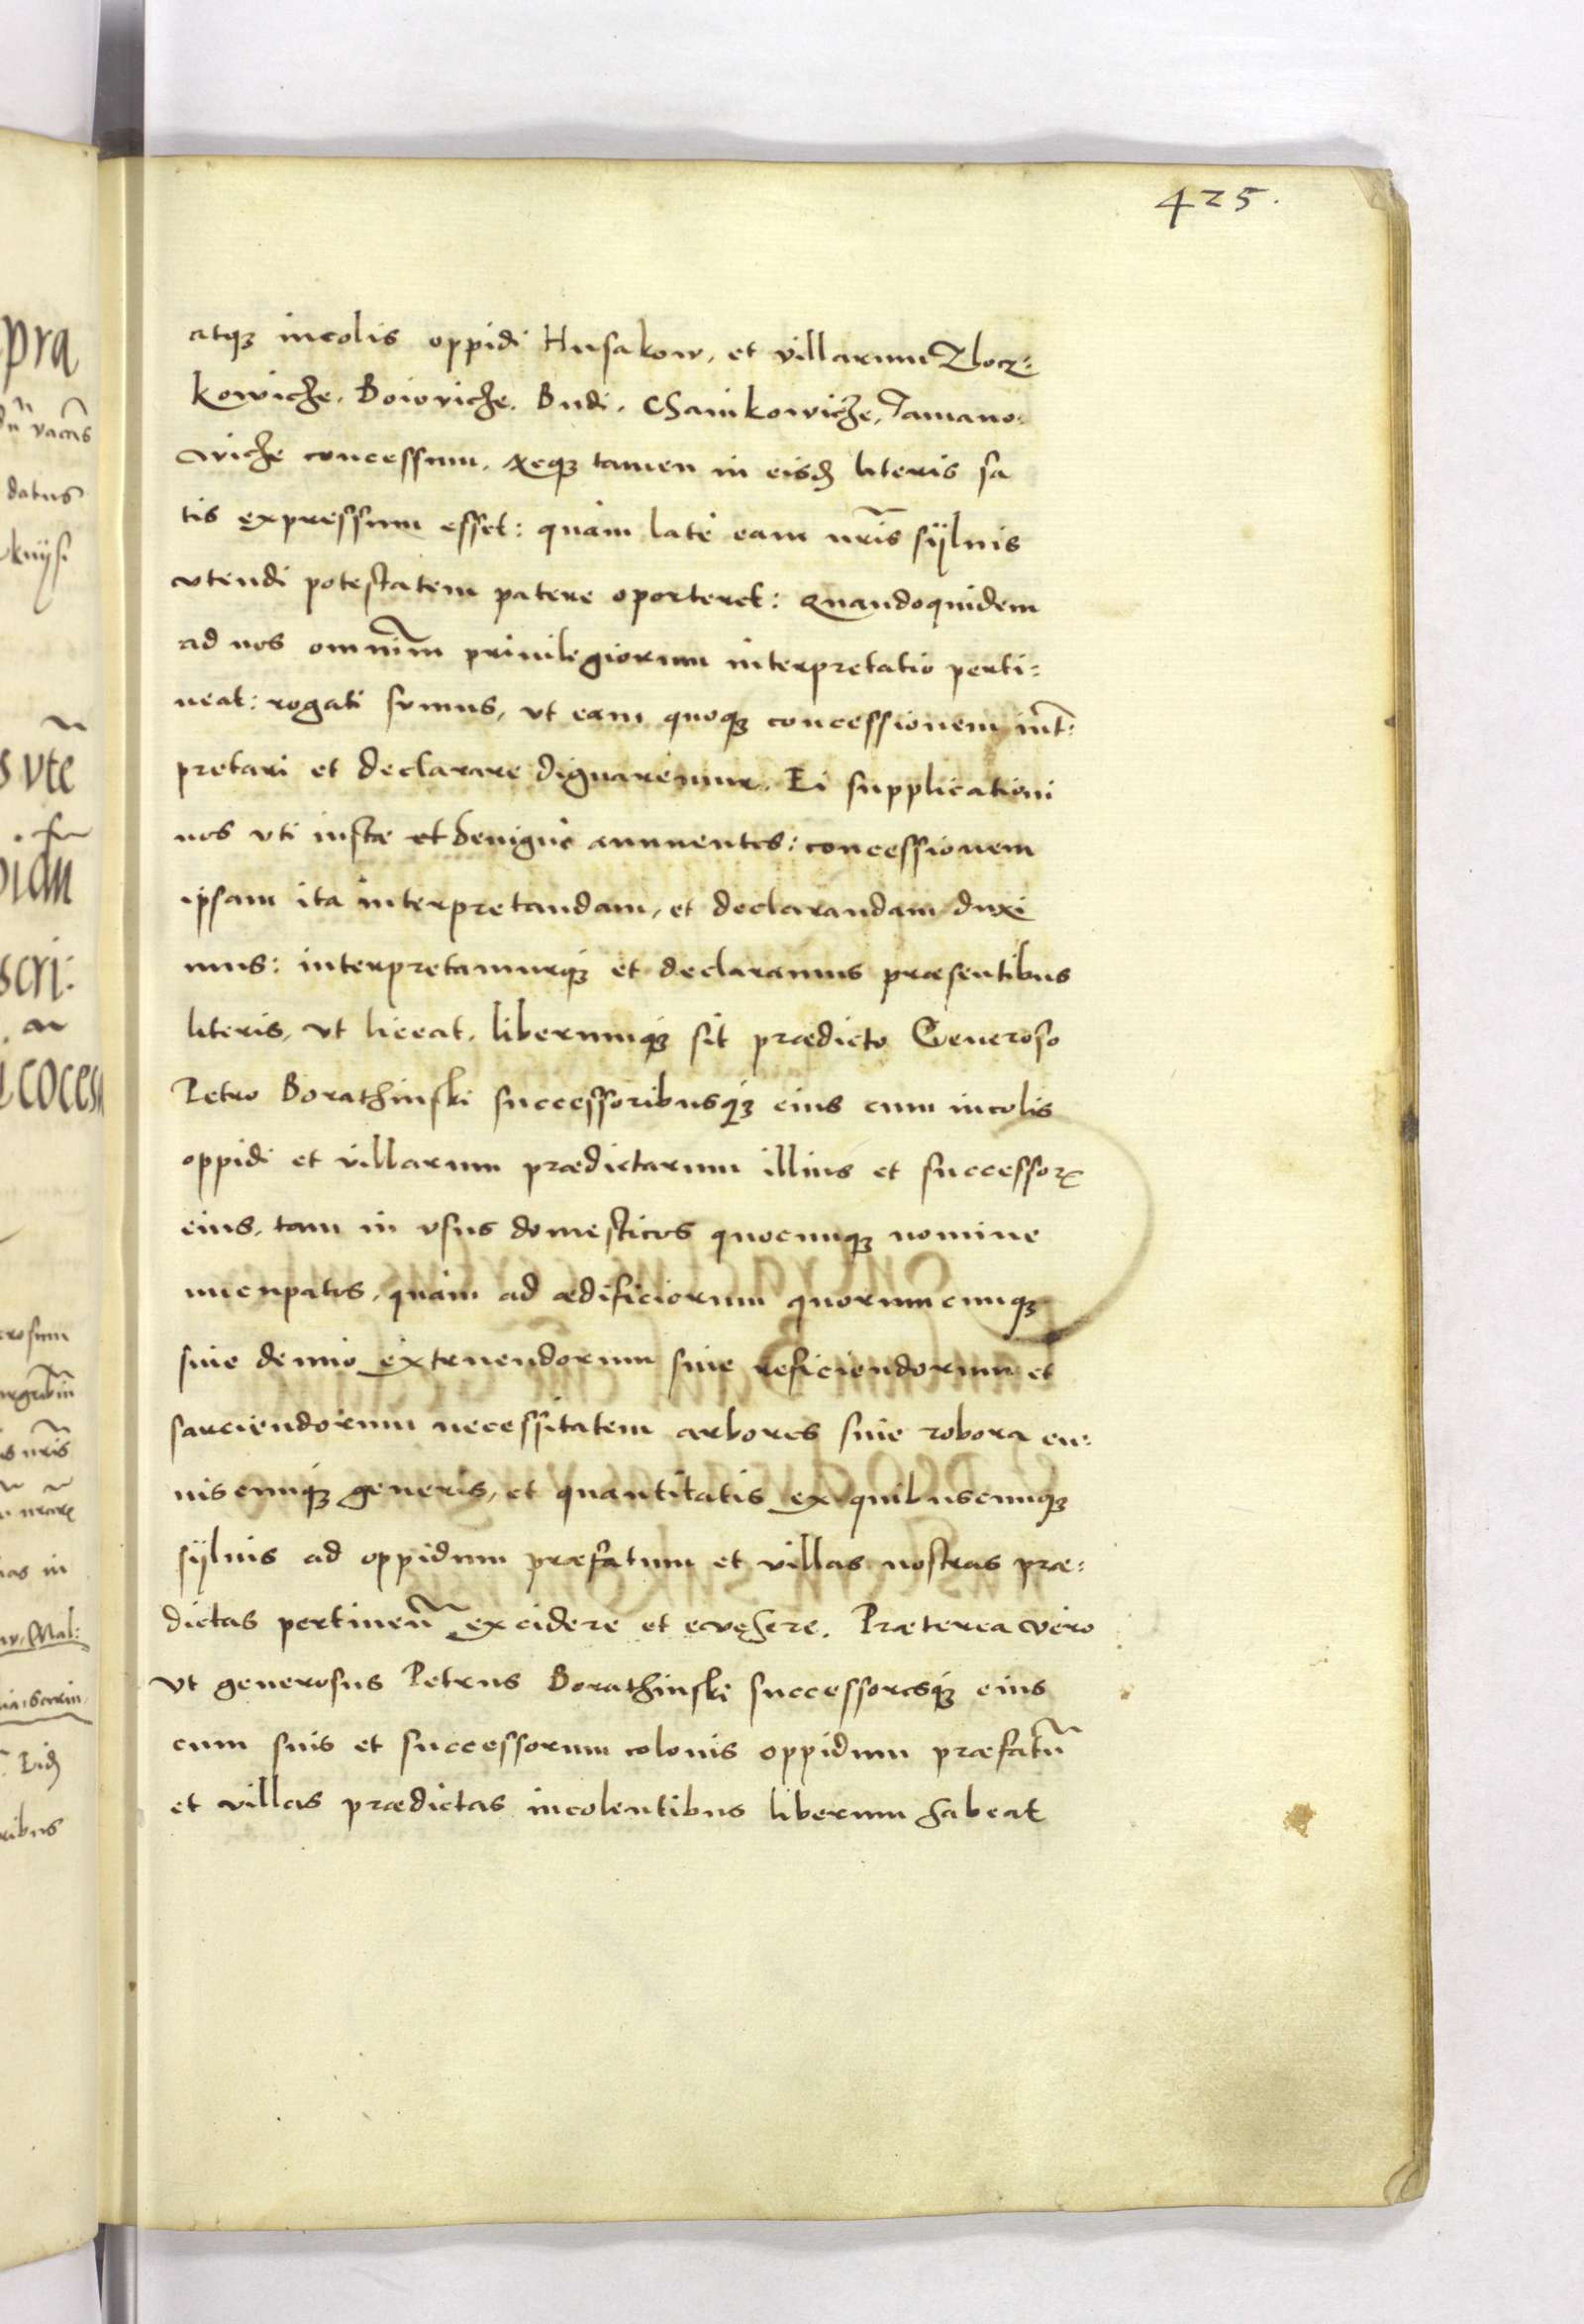 425.
atq3 incolis oppidi Husakow, et villarum Zlocz-
kowicze, Boiowicze, Budi, Chainkowicze, Tamano-
wicze concessum, neq3 tamen in eisd literis sa
tis expressum esset: quàm latè eam nr̃is sÿluis
vtendi potestatem patere oporteret: Quandoquidem
ad nos omniũm priuilegiorum interpretatio perti-
neat: rogati sumus, vt eam quoq3 concessionem int̃-
pretari et declarare dignaremur. Ei supplicationi
nos vti iustæ et benignè annuentes: concessionem
ipsam ita interpretandam, et declarandam duxi
mus: interpretamurq3 et declaramus præsentibus
literis, vt liceat, liberumq3 sit prædicto Generoso
Petro Borathinski successoribusq3 eius cum incolis
oppidi et villarum prædictarum illius et successorꝝ
eius, tam in vsus domesticos quocunq3 nomine
nuncupatos, quàm ad ædificiorum quorumcunq3
siue denuo extruendorum siue reficiendorum et
sarciendorum necessitatem arbores siue robora cu-
iuscunq3 generis, et quantitatis ex quibuscunq3
sÿluis ad oppidum præfatum et villas nostras præ-
dictas pertineñ excidere et euehere. Præterea vero
vt generosus Petrus Borathinski successoresq3 eius
cum suis et successorum colonis oppidum præfatũ
et villas prædictas incolentibus liberum habeat